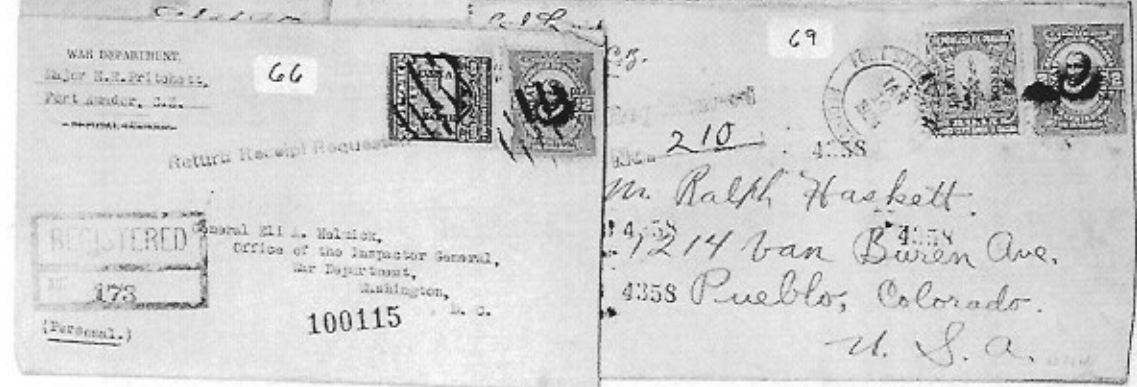 66
WAR DEPARTMENT
Major H.H.Pritchett,
Fort C.Z.
Return Receipt Requested
REGISTERED
NO. 173
General Eli A. Helmick,
Office of the Inspector General,
War Department,
Washington,
D. C.
(Personal.)
100115
69
No. 210
4358
Mr. Ralph Haskett.
4358
4358
1214 Van Buren Ave.
4358
Pueblo, Colorado.
U. S. A.